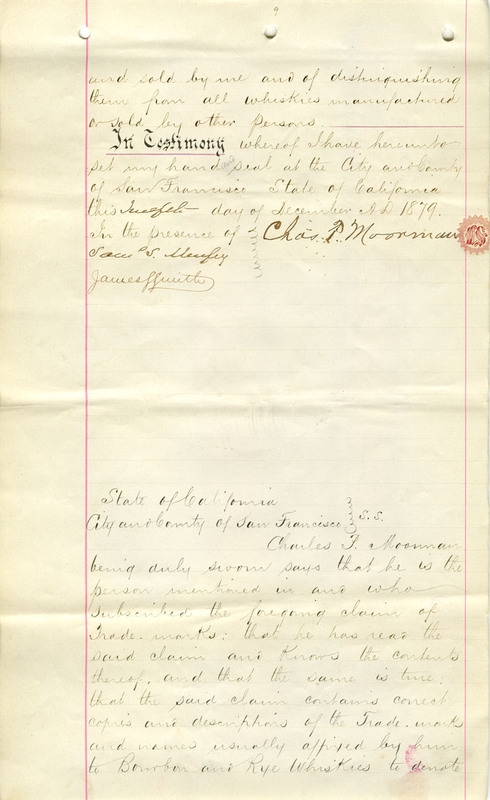 9
and sold by me and of distinguishing
them from all whiskies manufactured
or sold by other persons.
In Testimony whereof I have hereunto
set my hand & seal at the City and County
of San Francisco State of California
this Twelfth day of December A.D. 1879.
In the presence of Chas. P. Moorman
Sam'l S. Murfey
James L. Smith
State of California
City and County of San Francisco S.S.
Charles P. Moorman
being duly sworn says that he is the
person mentioned in and who
subscribed the foregoing claim of
Trade-marks: that he has read the
said claim and knows the contents
thereof, and that the same is true:
that the said claim contains correct
copies and descriptions of the Trade-mark
and names usually affixed by him
to Bourbon and Rye Whiskies to denote